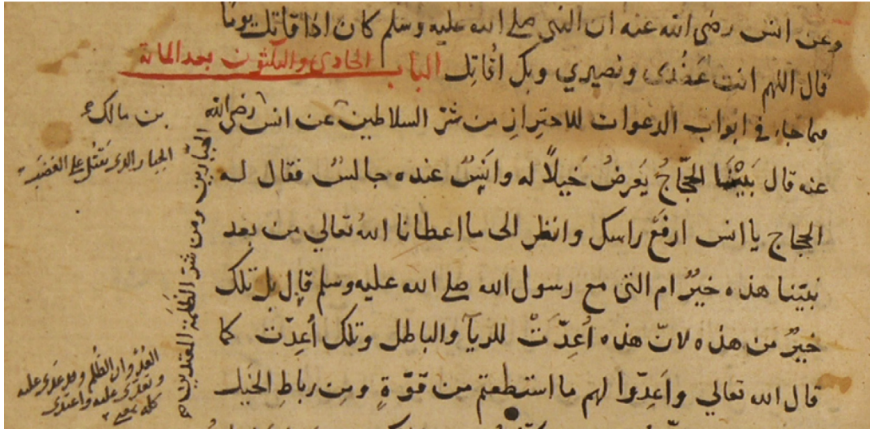 وعن انس رضى الله عنه ان النبى صلى الله عليه وسلم كان اذا قاتل
قال اللهم انت عَضُدى ونصيري وبك اُقاتِل الباب الحادى والثلثون بعد المائة
مما جاء فى ابواب الدعوات للاحترازِ من شرّ السلاطين عن انس رضى الله
عنه قال بَيْنَما الحجّاجُ يَعرِضُ خَيلاً له وانَسٌ عنده جالسٌ فقال له
الحجاج يا انس ارفعْ راسك وانظر الى ما اعطانا اللهُ تعالي من بعد
نبيّنا هذه خيرٌ ام التى مع رسول الله صلى الله عليه وسلم قال بل تلك
خيرٌ من هذه لانّ هذه اُعِدّتْ للريآ والباطل وتلك اُعِدّت كما
قال الله تعالي واَعِدّوا لهم ما استطعتم من قوّةٍ ومِن رباطِ الخيل
بن مالك
الجبار الذى يَقتُل على الغضب
الجبّارين ومن شرّ الظَلَمة
العُدْوان الظُلم وقد عَدَى عليه
وتعدّى عليه واعتدى
كله بمعنى